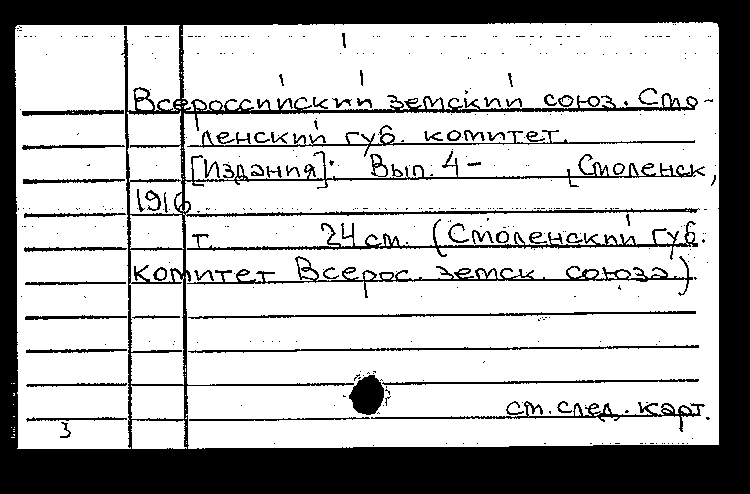 Всероссийский земский союз. Смо-
ленский губ. комитет.
[Издания]: Вып. 4- [Смоленск,
1916.
т. 24 см. (Смоленский губ.
комитет Всерос. земск. союза.)
см. след. карт.
3